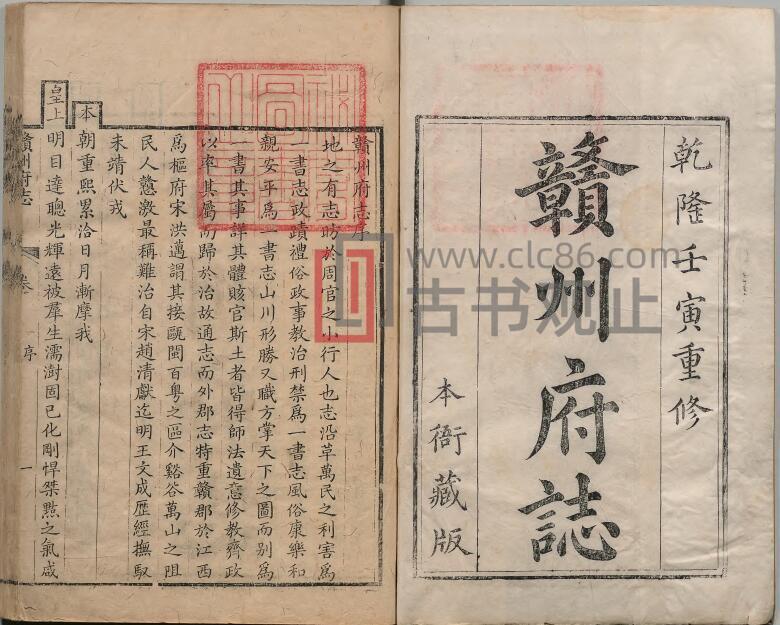 乾隆壬寅重修
贛州府誌
本衙藏版
www.clc86.com
古书观止
贛州府志序
地之有志昉於周官之小行人也志沿革萬民之利害為
一書志政蹟禮俗政事教治刑禁為一書志風俗康樂和
親安平為一書志山川形勝又職方掌天下之圖而別為
一書其事詳其體賅官斯土者皆得師法遺意修教齊政
以率其屬而歸於治故通志而外郡志特重贛郡於江西
為樞府宋洪邁謂其接甌閩百粵之區介谿谷萬山之阻
民人戆激最稱難治自宋趙清獻迄明王文成歷經撫馭
未靖伏戎
本
朝重熙累洽日月漸摩我
皇上
明目達聰光輝遠被羣生濡澍固已化剛悍桀黠之氣咸
贛州府志
序
一